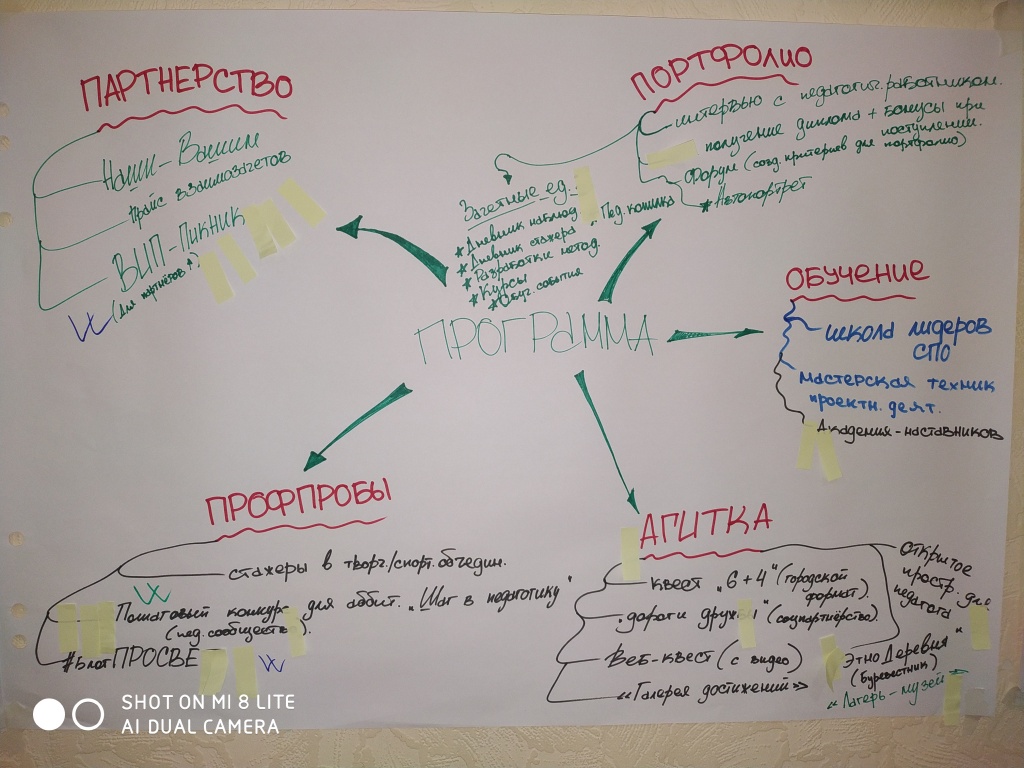 ПАРТНЕРСТВО
Наши-Вашим
Прайс взаимозачетов
ВИП-Пикник
(для партнёров)
ПОРТФОЛИО
интервью с педагогич. работником.
получение диплома + бонусы при
поступлении.
Форум (созд. критериев для портфолио)
* Автопортрет
Зачетные ед.
* Дневник наблюд.
* Дневник стажера
" Пед. копилка
* Разработки метод.
* Курсы
* Обуч. события
ПРОГРАММА
ОБУЧЕНИЕ
школа лидеров
СПО
мастерская техник
проектн. деят.
Академия-наставников
ПРОФПРОБЫ
стажеры в творч./спорт. объедин.
Пошаговый конкур- для абит. „Шаг в педагогику"
(пед. сообществ ).
#Блог ПРОСВЕ
АГИТКА
квест „6+4" (городской
формат).
. дороги дружбы" (соцпартнёрство).
Веб-квест (с видео)
«Галерея достижений»
открытое
простр. для
педагога
ЭтноДеревня"
(Буревестник)
«Лагерь-музей»
SHOT ON MI 8 LITE
AI DUAL CAMERA